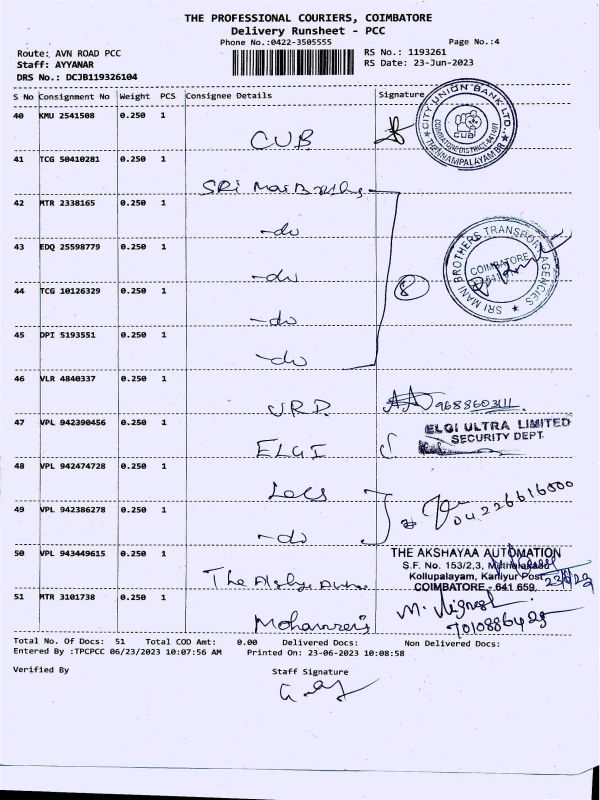 THE PROFESSIONAL COURIERS, COIMBATORE
Delivery Runsheet - PCC
Phone No.:0422-3505555
Page No.:4
Route: AVN ROAD PCC
RS No.: 1193261
Staff: AYYANAR
RS Date: 23-Jun-2023
DRS No.: DCJB119326104
S No Consignment No Weight PCS Consignee Details Signature
40 KMU 2541508 0.250 1 CUB
CITY UNION BANK LTD.,
CUB
41 TCG 50410281 0.250 1 SRi Mani
42 MTR 2338165 0.250 1 -do
43 EDQ 25598779 0.250 1 -do
SRI MANI BROTHERS TRANSPORT AGENCIES
COIMBATORE
44 TCG 10126329 0.250 1 -do
8
45 DPI 5193551 0.250 1 -do
46 VLR 4840337 0.250 1 URD
47 VPL 942390456 0.250 1 ELGI
ELGI ULTRA LIMITED
SECURITY DEPT.
48 VPL 942474728 0.250 1
49 VPL 942386278 0.250 1 -do
50 VPL 943449615 0.250 1 The
THE AKSHAYAA AUTOMATION
S.F. No. 153/2,3,
Kollupalayam, Kaniyur Post,
COIMBATORE - 641 659.
51 MTR 3101738 0.250 1
M. Vignesh
Total No. Of Docs: 51 Total COD Amt: 0.00 Delivered Docs: Non Delivered Docs:
Entered By :TPCPCC 06/23/2023 10:07:56 AM Printed On: 23-06-2023 10:08:58
Verified By
Staff Signature